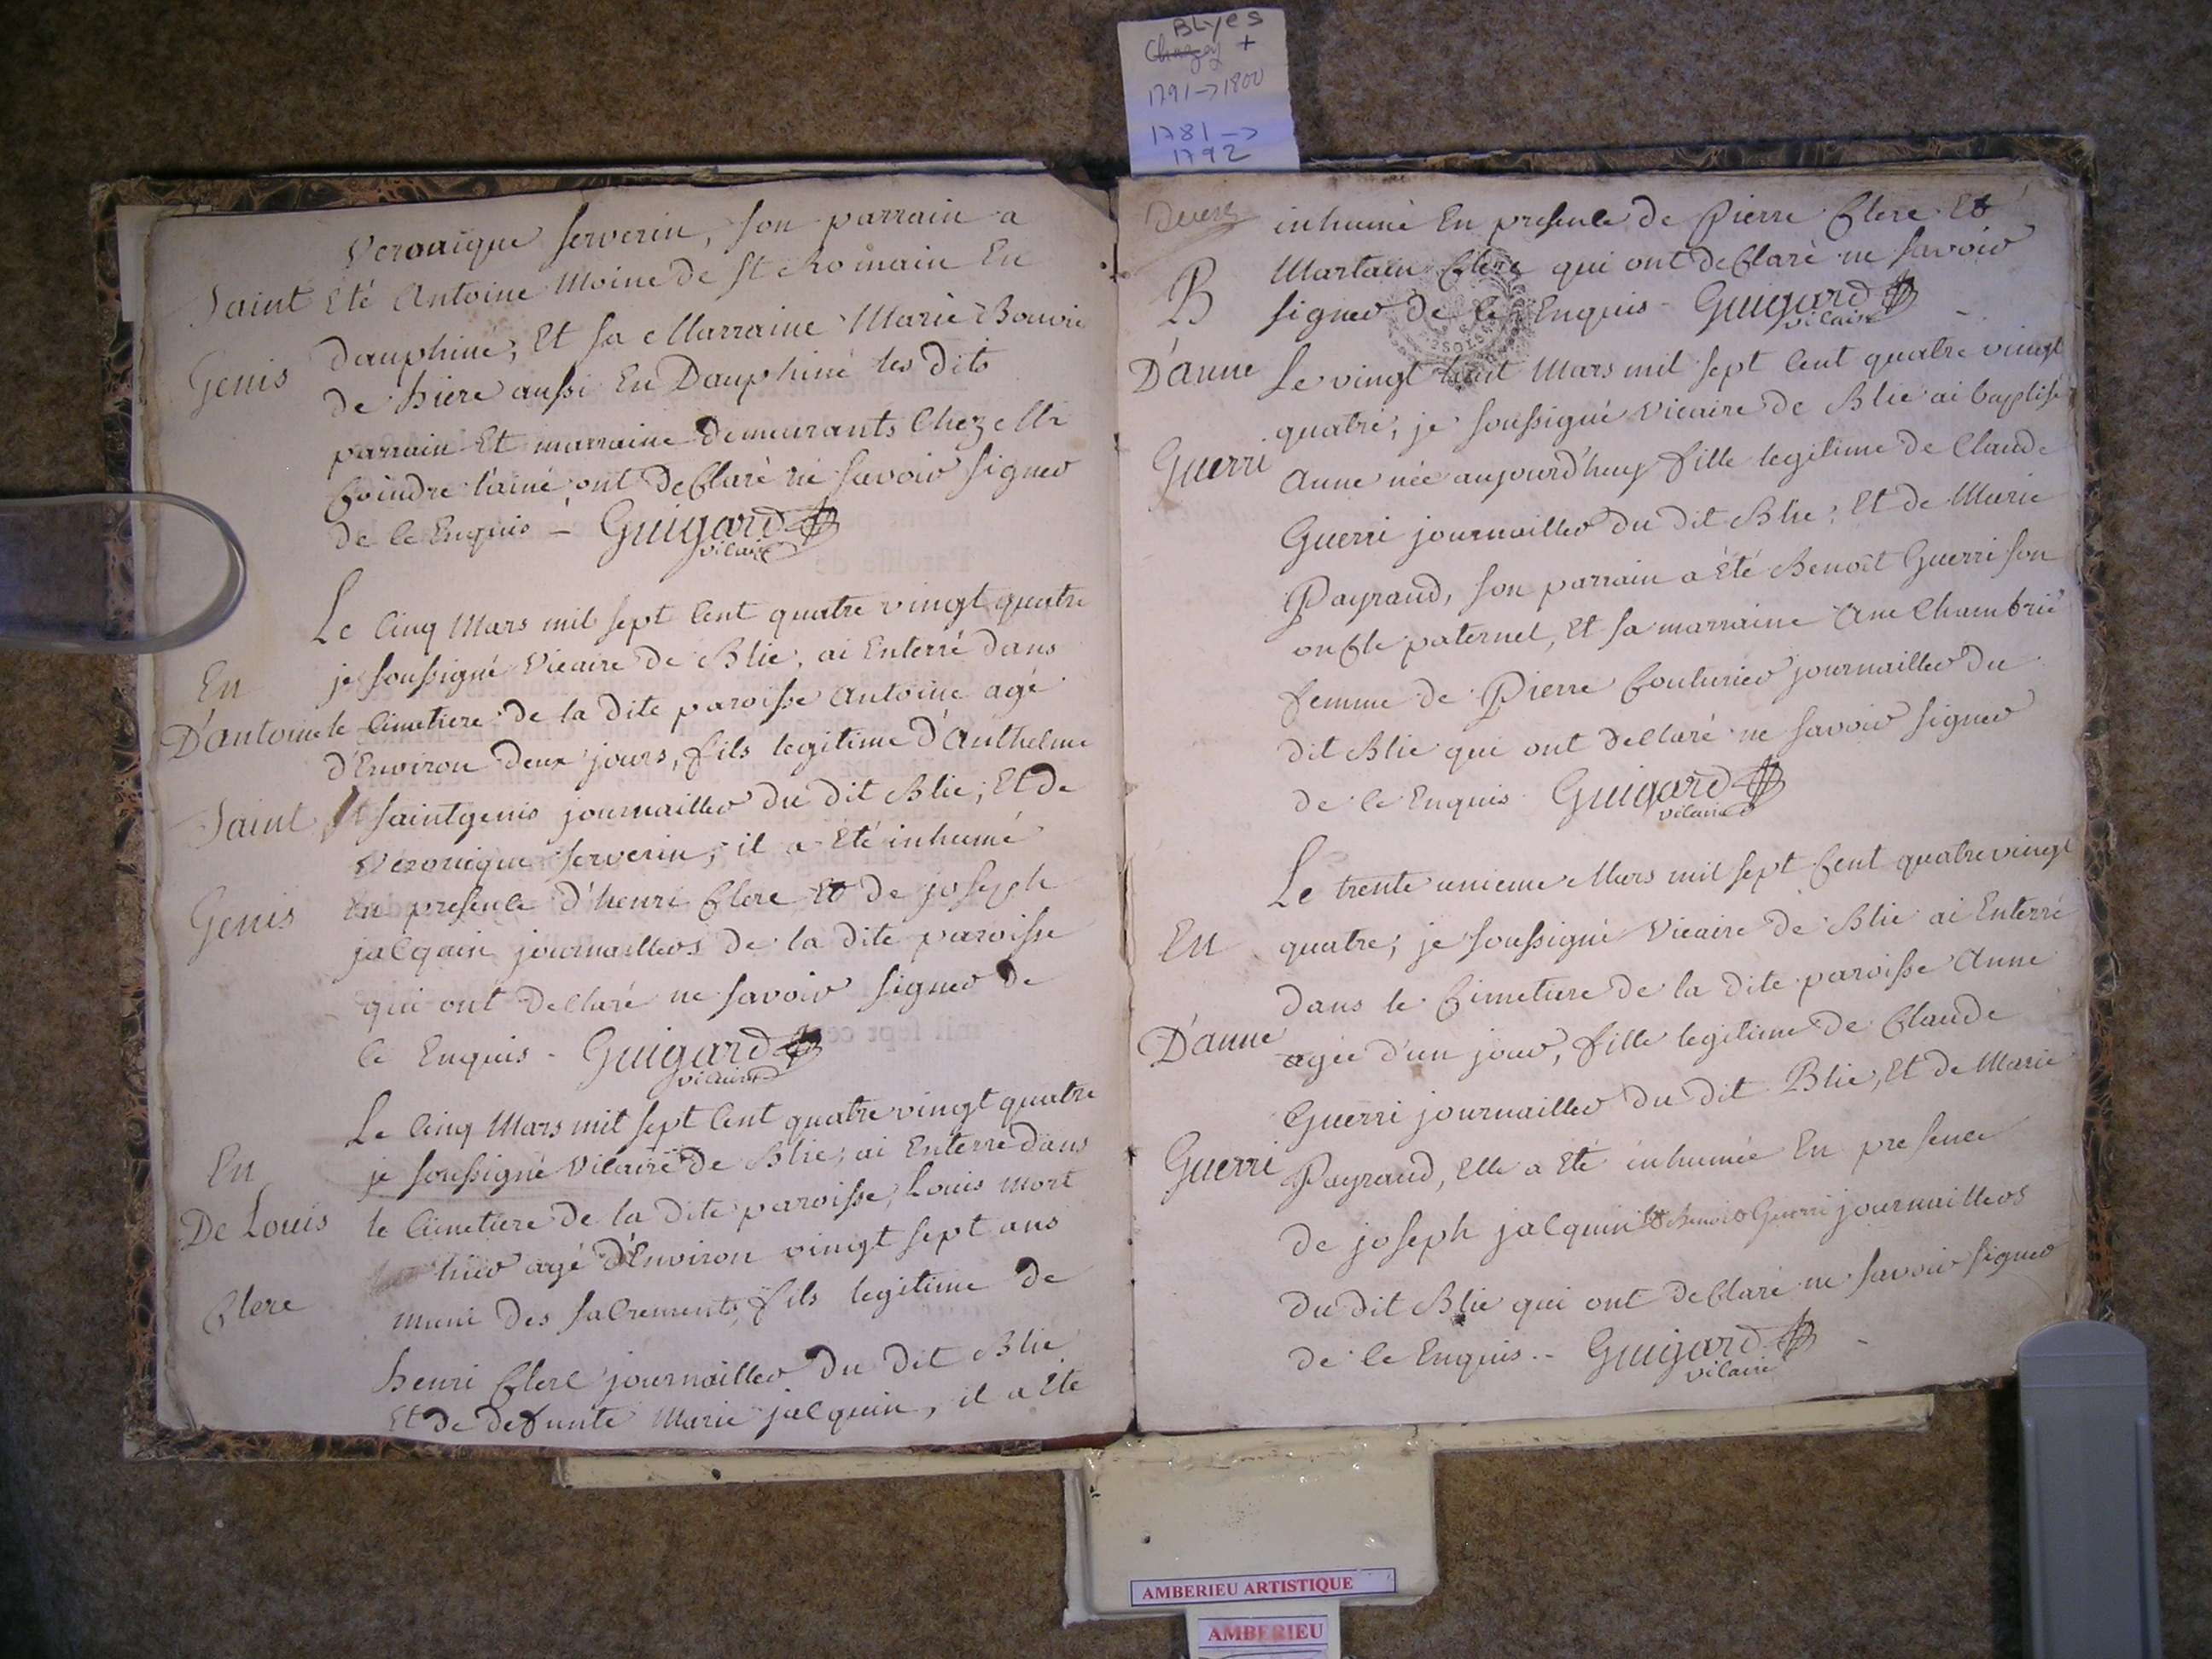 BLyes
Chazey +
1791->1800
1781->
1792
Veronique serverin, son parrain a
Saint
Eté Antoine Moine de st Romain En
Genis
Dauphiné, Et sa Marraine Marie Bouvie
de hiere aussi En Dauphiné les dits
parrain Et marraine demeurants Chez Mr
Coindre l'ainé, ont declaré ne savoir signer
de ce Enquis - Guigard
vicaire
Le Cinq Mars mil sept Cent quatre vingt quatre
En
je soussigné Vicaire de Blie, ai Enterré dans
D'antoine
le Cimetiere de la dite paroisse Antoine agé
d'Environ deux jours, fils legitime d'Anthelme
Saint
saintgenis journailler du dit Blie, Et de
Veronique serverin, il a Eté inhumé
Genis
En presence d'henri Clere Et de joseph
jacquin journaillers de la dite paroisse
qui ont declaré ne savoir signer de
ce Enquis - Guigard
vicaire
Le Cinq Mars mil sept Cent quatre vingt quatre
En
je soussigné Vicaire de Blie, ai Enterré dans
De Louis
le Cimetiere de la dite paroisse, Louis mort
hier agé d'Environ vingt sept ans
Clere
muni des sacrements, fils legitime de
henri Clere journailler du dit Blie
Et de defunte Marie jacquin, il a Eté
inhumé En presence de Pierre Clere Et
B
Martain Clere qui ont declaré ne savoir
signer de ce Enquis - Guigard
vicaire
D'anne
Le vingt huit Mars mil sept Cent quatre vingt
quatre, je soussigné vicaire de Blie ai baptisé
Guerri
Anne née aujourd'huy fille legitime de Claude
Guerri journailler du dit Blie, Et de Marie
Payraud, son parrain a Eté Benoît Guerri son
oncle paternel, Et sa marraine Ane Chambrie
femme de Pierre Couturier journailler du
dit Blie qui ont declaré ne savoir signer
de ce Enquis Guigard
vicaire
Le trente unieme Mars mil sept Cent quatre vingt
En
quatre, je soussigné Vicaire de Blie ai Enterré
dans le Cimetiere de la dite paroisse Anne
D'anne
agée d'un jour, fille legitime de Claude
Guerri journailler du dit Blie, Et de Marie
Guerri
Payraud, Elle a Eté inhumée En presence
de joseph jacquin Et Benoit Guerri journaillers
du dit Blie qui ont declaré ne savoir signer
de ce Enquis.- Guigard
vicaire
AMBERIEU ARTISTIQUE
AMBERIEU